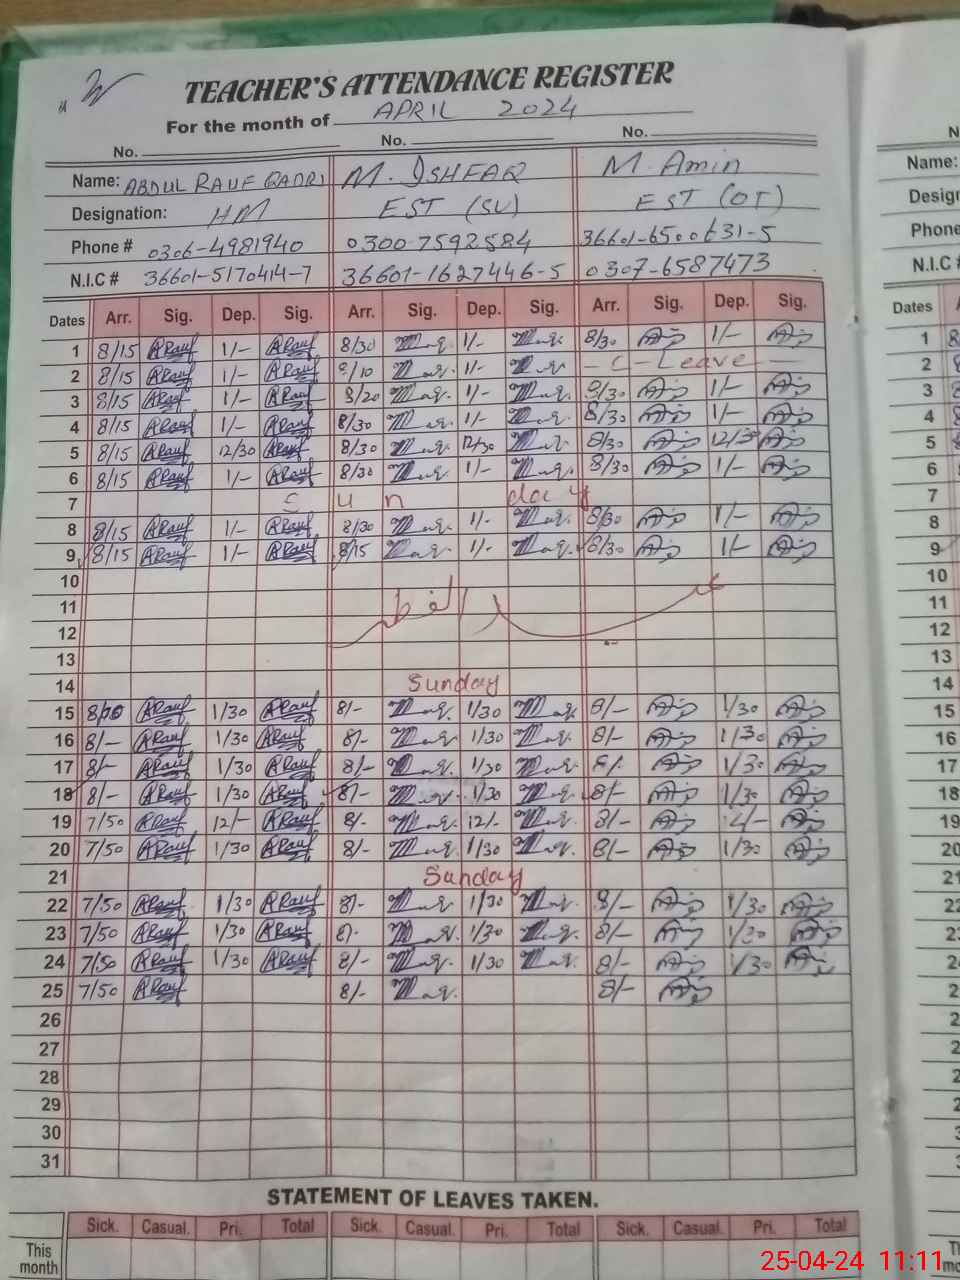 TEACHER'S ATTENDANCE REGISTER
For the month of APRIL 2024
No. No. No.
Name: ABDUL RAUF QADRI M. ISHFAQ M. Amin
Designation: HM EST (SV) EST (OT)
Phone # 0306-4981940 0300-7592584 36601-6500631-5
N.I.C # 36601-5170414-7 36601-1627446-5 0307-6587473
Dates Arr. Sig. Dep. Sig. Arr. Sig. Dep. Sig. Arr. Sig. Dep. Sig.
1 8/15 ARauf 1/- ARauf 8/30 1/- 8/30 1/-
2 8/15 ARauf 1/- ARauf 8/10 1/- - C - Leave -
3 8/15 ARauf 1/- ARauf 8/20 1/- 8/30 1/-
4 8/15 ARauf 1/- ARauf 8/30 1/- 8/30 1/-
5 8/15 ARauf 12/30 ARauf 8/30 12/30 8/30 12/30
6 8/15 ARauf 1/- ARauf 8/30 1/- 8/30 1/-
7 Sunday
8 8/15 ARauf 1/- ARauf 8/30 1/- 8/30 1/-
9 8/15 ARauf 1/- ARauf 8/15 1/- 8/30 1/-
10
11 عید الفطر
12
13
14 Sunday
15 ARauf 1/30 ARauf 8/- 1/30 8/- 1/30
16 8/- ARauf 1/30 ARauf 8/- 1/30 8/- 1/30
17 8/- ARauf 1/30 ARauf 8/- 1/30 8/- 1/30
18 8/- ARauf 1/30 ARauf 8/- 1/30 8/- 1/30
19 7/50 ARauf 12/- ARauf 8/- 12/- 8/-
20 7/50 ARauf 1/30 ARauf 8/- 1/30 8/- 1/30
21 Sunday
22 7/50 ARauf 1/30 ARauf 8/- 1/30 8/- 1/30
23 7/50 ARauf 1/30 ARauf 8/- 1/30 8/- 1/30
24 7/50 ARauf 1/30 ARauf 8/- 1/30 8/- 1/30
25 7/50 ARauf 8/- 8/-
26
27
28
29
30
31
STATEMENT OF LEAVES TAKEN.
Sick. Casual. Pri. Total Sick. Casual. Pri. Total Sick. Casual. Pri. Total
This month
Name:
Phone
N.I.C #
Dates
1
2
3
4
5
6
7
8
9
10
11
12
13
14
15
16
17
18
19
20
25-04-24 11:11